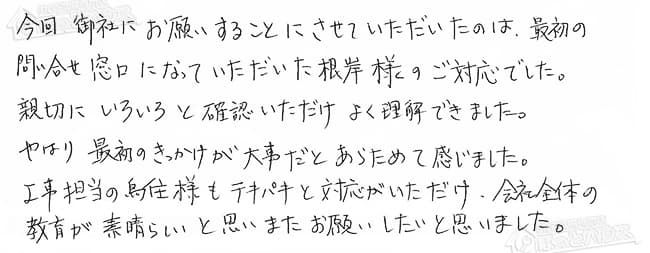 今回 御社に お願いすることに させていただいたのは、最初の
問い合せ窓口になっていただいた根岸様のご対応でした。
親切に いろいろと確認いただけ よく理解できました。
やはり 最初のきっかけが大事だとあらためて感じました。
工事担当の鳥住様も テキパキと対応がいただけ、会社全体の
教育が素晴らしいと思いまたお願いしたいと思いました。